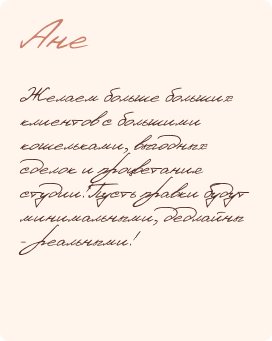 Ане
Желаем больше больших
клиентов с большими
кошельками, выгодных
сделок и процветания
студии! Пусть правки будут
минимальными, дедлайны
- реальными!